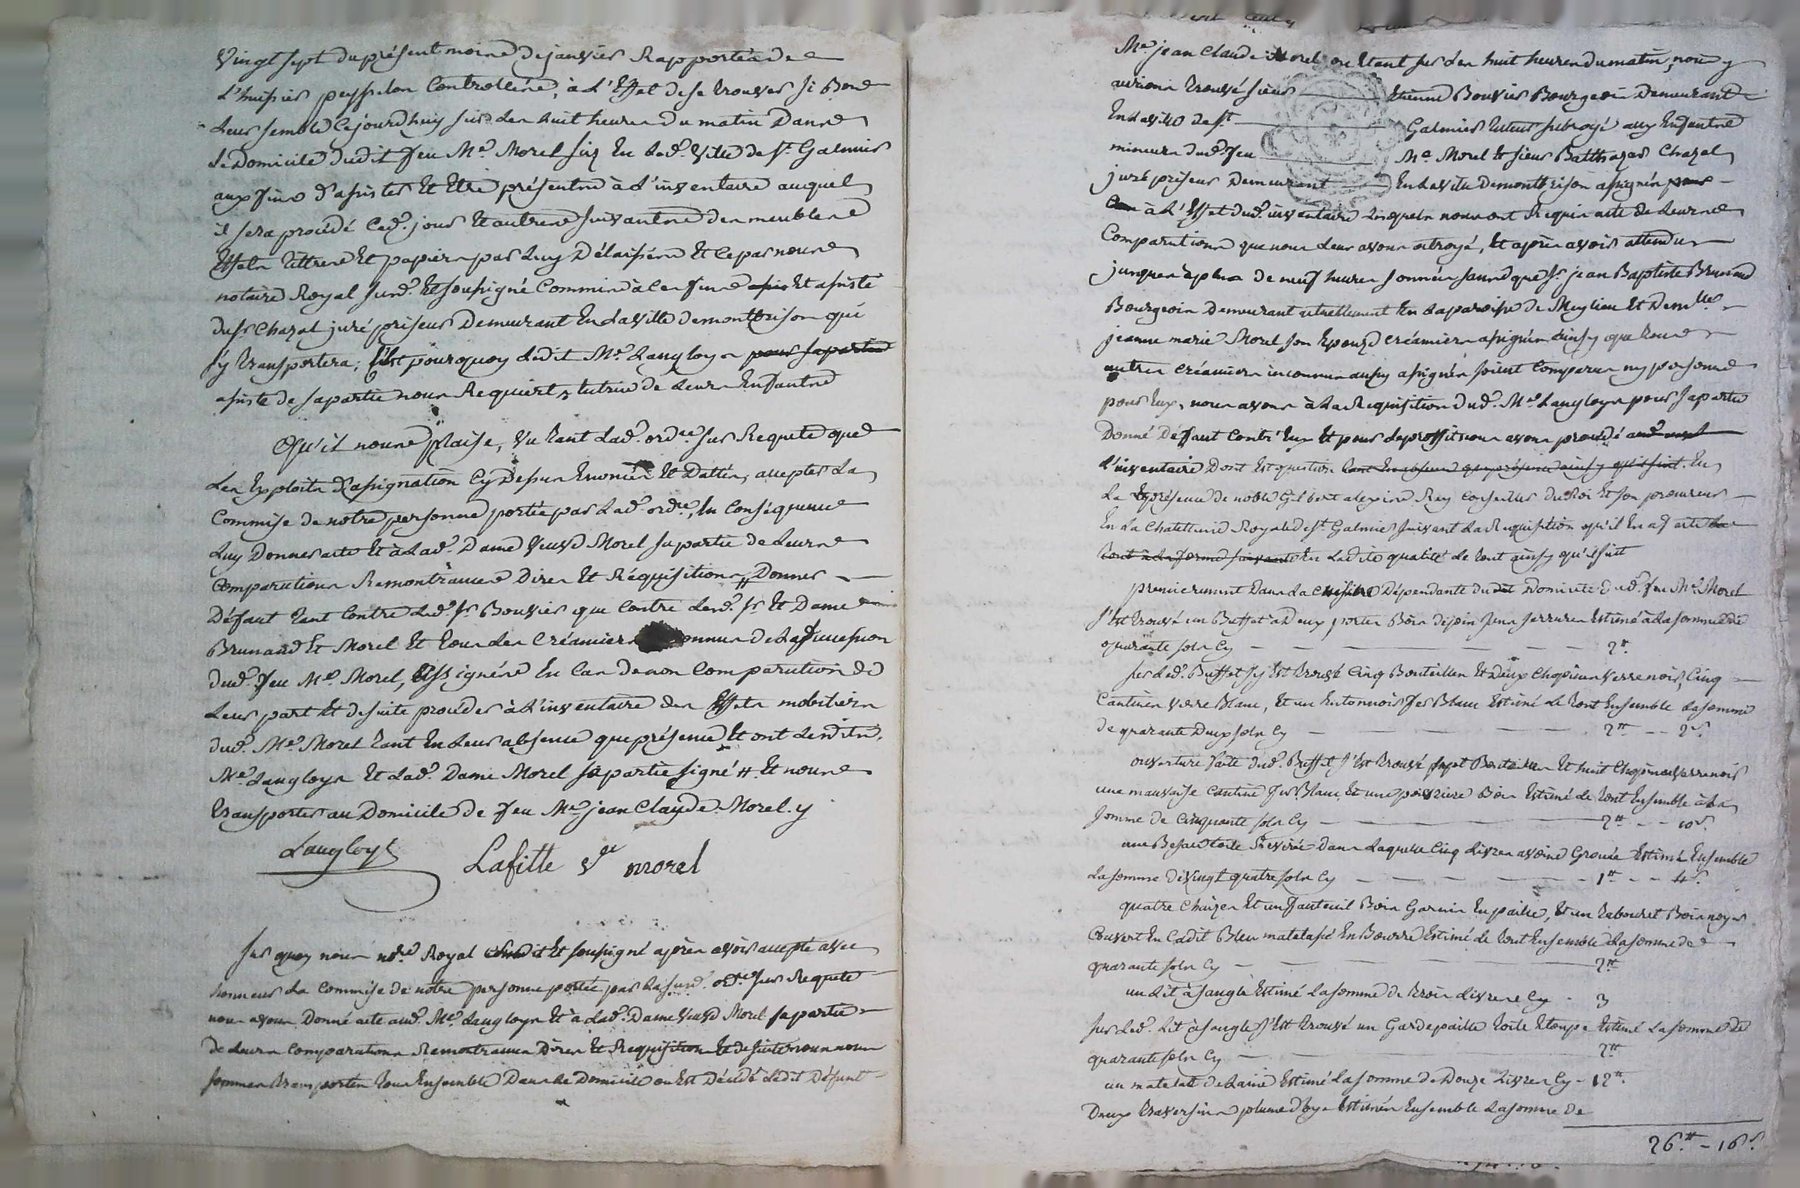 Vingt sept du présent mois de janvier Rapportés de
L'huissier peysselon Controllés, à L'Effet de se trouver si Bon
Leur semble Cejourdhuy sur Les huit heures du matin Dans
Le Domicile dudit feu Me. Morel sis En Lad. ville de St. Galmier
aux fins d'assister Et Etre présents à L'inventaire auquel
il sera procédé Ced. jour Et autres suivants des meubles
Effets tittres Et papiers par Luy Délaissés Et Ce par nous
notaire Royal susd. Et soussigné Commis à Ces fins Et assisté
du sr Chazal juré priseur Demeurant En La ville de montbrison qui
s'y transportera; C'est pourquoy Ledit Me. Langloys pour sa partie
assisté de sa partie nous Requiert, tutrice de Leurs Enfants
Qu'il nous Plaise, vu tant Lad. ordce. sur Requete que
Les Exploits D'assignation Cy Dessus Enoncés Et Dattés, accepter La
Commise de notre personne portée par Lad. ordce., En Conséquence
Luy Donner acte Et à Lad. Dame veuve Morel sa partie de Leurs
Comparutions Remontrances Dires Et Réquisitions, Donner
Défaut tant Contre Led. Sr. Bouvier que Contre Lesd. Sr. Et Dame
Brunand Et Morel Et tous Les Créanciers connus de La succession
dud. feu Me. Morel, assignés En Cas de non Comparution de
Leur part Et de suite procéder à L'inventaire des Effets mobiliers
dud. Me. Morel tant En Leur absence que présence Et ont Lesdits
Me. Langloys Et Lad. Dame Morel sa partie signé Et nous
transporter au Domicile de feu Me. jean Claude Morel y
Langloys
Lafitte Ve. morel
Sur quoy nous nore. Royal susdit Et soussigné après avoir accepté avec
honneur La Commise de notre personne portée par La susd. ordce. sur Requete
nous avons Donné acte aud. Me. Langloys Et à Lad. Dame veuve Morel sa partie
de Leurs Comparutions Remontrances Dires Et Requisitions Et de suite nous nous
sommes transportés tous Ensemble Dans Le Domicile ou Est Décédé Ledit Défunt
Me. jean Claude Morel ou Etant sur Les huit heures du matin, nous y
aurions trouvé sieur Etienne Bouvier Bourgeois Demeurant
En La ville de St. Galmier tuteur subrogé aux Enfants
mineurs dud. feu Me. Morel Et sieur Balthazar Chazal
juré priseur Demeurant En La ville de montbrison assignés pour
à L'Effet dud. inventaire Lesquels nous ont Requis acte de Leurs
Comparutions que nous Leur avons octroyé, Et après avoir attendu
jusques à plus de neuf heures sonnées sans que Sr. jean Baptiste Brunand
Bourgeois Demeurant actuellement En La paroisse de Meylieu Et Demlle.
jeanne marie Morel son Epouse créanciers assignés ainsy que tous
autres Créanciers inconnus aussy assignés soient Comparus ny personne
pour Eux, nous avons à La Requisition dud. Me. Langloys pour sa partie
Donné Deffaut Contr'Eux Et pour Le proffit nous avons procédé
L'inventaire Dont Est question En
La présence de noble Gilbert alexis Rey Conseiller du Roi Et son procureur
En La Chatellenie Royale de St. Galmier suivant La Requisition qu'il En a faite
En Ladite qualité Le tout ainsy qu'il suit
premierement Dans La Cuisine Dépendante dudit Domicile dud. feu Me. Morel
s'Est trouvé un Buffet à Deux portes Bois de pin sans serrure Estimé à La somme de
quarante sols Cy — 2tt.
sur Led. Buffet s'y Est trouvé Cinq Bouteilles Et deux Chopines verre noir, Cinq
Cantines verre Blanc, Et un Entonnoir fer Blanc Estimé Le tout Ensemble La somme
de quarante Deux sols Cy — 2tt. - - 2s.
ouverture faite dud. Buffet s'Est trouvé sept Bouteilles Et huit Chopines verre noir
une mauvaise Cantine fer Blanc Et une poivriere Bois Estimé Le tout Ensemble à La
somme de Cinquante sols Cy — 2tt. - - 10s.
une Besace toile Dans Laquelle Cinq Livres avoine Gruée Estimé Ensemble
La somme de vingt quatre sols Cy — 1tt. - - 4s.
quatre Chaizes Et un fauteuil Bois Garnis En paille, Et un tabouret Bois noyer
Couvert En Cadit Bleu matelassé En Bourre Estimé Le tout Ensemble La somme de
quarante sols Cy — 2tt
un Lit à sangle Estimé La somme de trois Livres Cy - 3
sur Led. Lit à sangle s'Est trouvé un Gardepaille toile Etoupe Estimé La somme de
quarante sols Cy — 2tt
un matelatt de Laine Estimé La somme de Douze Livres Cy - 12tt.
Deux traversins plume d'oye Estimés Ensemble La somme de
26tt - 16s.